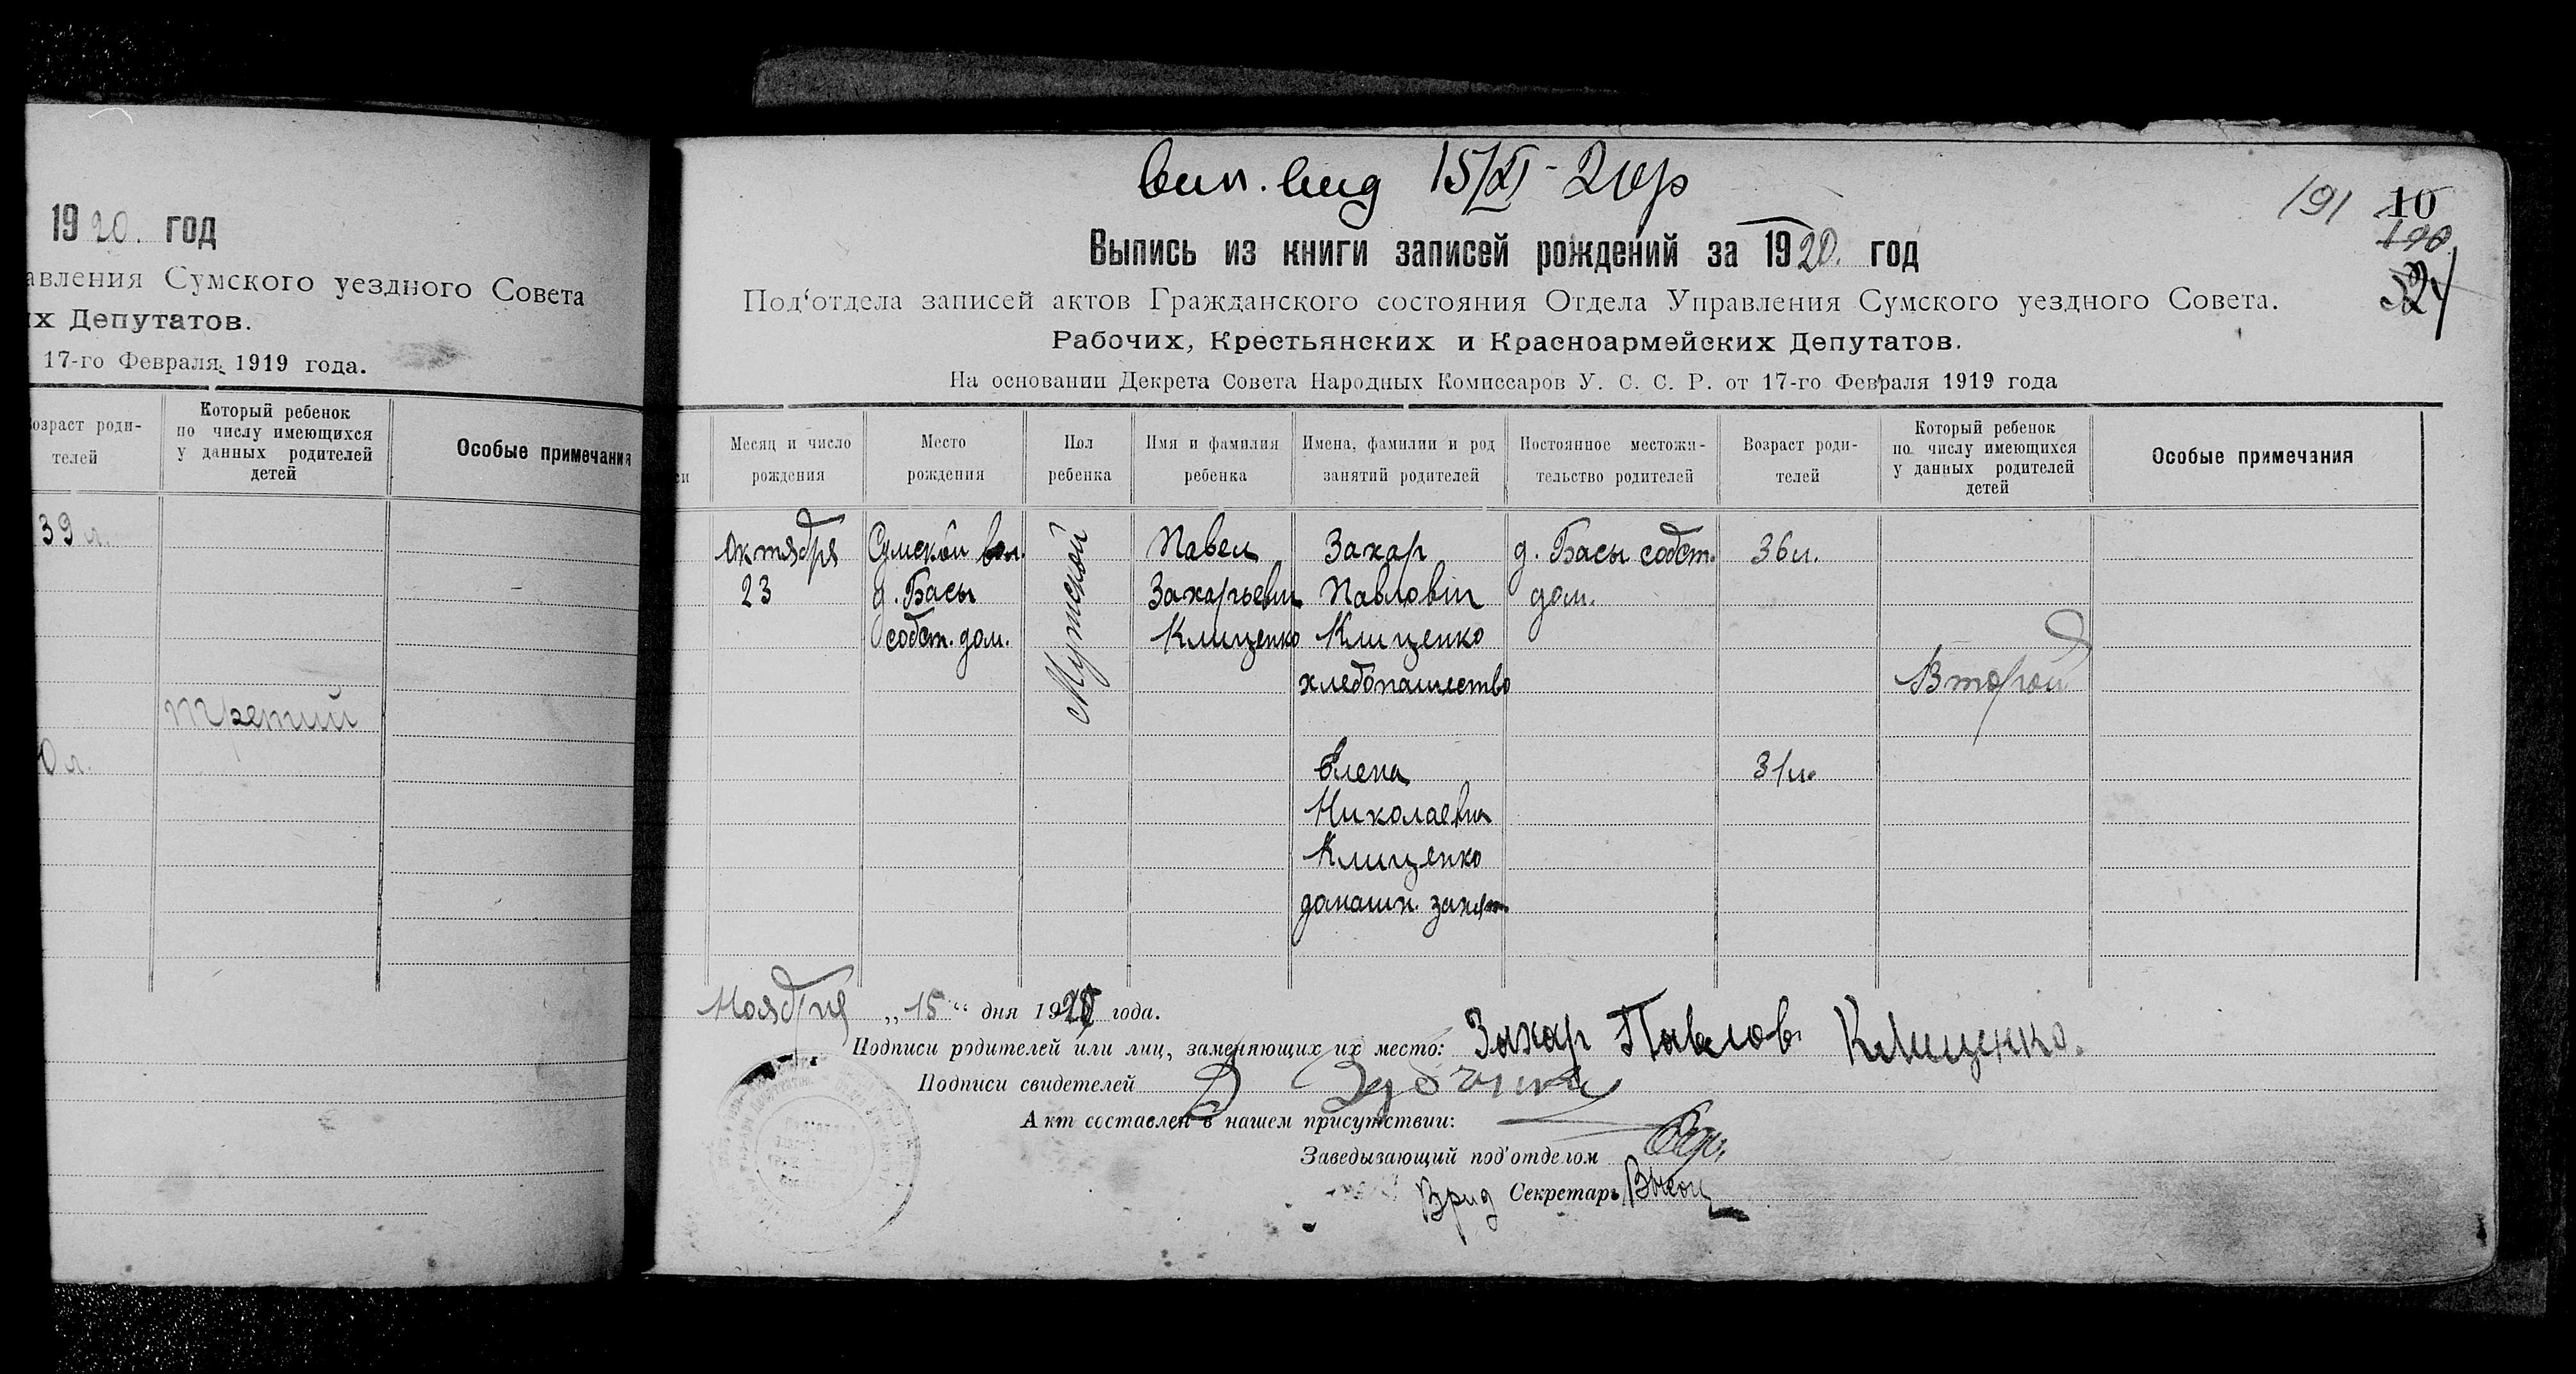 1920. год
авления Сумского уездного Совета
их Депутатов.
17-го Февраля 1919 года.
Возраст роди-
телей
Который ребенок
по числу имеющихся
у данных родителей
детей
Особые примечания
39 л.
третий
0 л.
вип. вид 15/XI-21р
191 10
190
Выпись из книги записей рождений за 1920. год
Под'отдела записей актов Гражданского состояния Отдела Управления Сумского уездного Совета.
Рабочих, Крестьянских и Красноармейских Депутатов.
На основании Декрета Совета Народных Комиссаров У. С. С. Р. от 17-го Февраля 1919 года
Месяц и число
рождения
Место
рождения
Пол
ребенка
Имя и фамилия
ребенка
Имена, фамилии и род
занятий родителей
Постоянное местожи-
тельство родителей
Возраст роди-
телей
Который ребенок
по числу имеющихся
у данных родителей
детей
Особые примечания
Октября
23
Сумской вол.
д. Басы
собст. дом.
Мужской
Павел
Захарьевич
Клищенко
Захар
Павлович
Клищенко
хлебопашество
Елена
Николаевна
Клищенко
домашн. занят.
д. Басы собст.
дом.
36 л.
31 л.
Второй
Ноября „15“ дня 1920 года.
Подписи родителей или лиц, заменяющих их место: Захар Павлов Клищенко.
Подписи свидетелей
Акт составлен в нашем присутствии:
Заведывающий под'отделом
Врид Секретарь